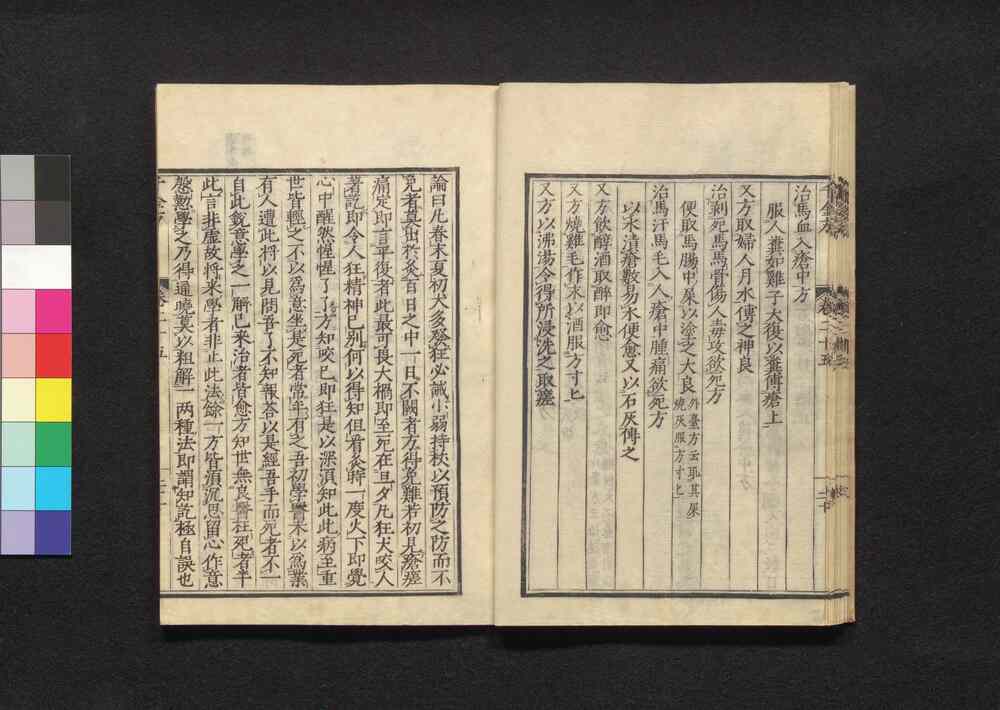 治馬血入瘡中方
服人糞如雞子大復以糞傅瘡上
又方取婦人月水傅之神良
治剝死馬馬骨傷人毒攻欲死方
便取馬腸中屎以塗之大良 外臺方云取其屎
燒灰服方寸匕
治馬汗馬毛入人瘡中腫痛欲死方
以水漬瘡數易水便愈又以石灰傅之
又方飲醇酒取醉即愈
又方燒雞毛作末以酒服方寸匕
又方以沸湯令得所浸洗之取瘥
論曰凡春末夏初犬多發狂必誡小弱持杖以預防之防而不
免者莫出於灸百日之中一日不闕者方得免難若初見瘡瘥
痛定即言平復者此最可畏大禍即至死在旦夕凡狂犬咬人
著訖即令人狂精神已別何以得知但看灸時一度火下即覺
心中醒然惺惺了了方知咬已即狂是以深須知此此病至重
世皆輕之不以為意坐是死者常年有之吾初學醫未以為業
有人遭此將以見問吾了不知報荅以是經吾手而死者不一
自此銳意學之一解已來治者皆愈方知世無良醫枉死者半
此言非虛故將來學者非止此法餘一方皆須沉思留心作意
慇懃學之乃得通曉莫以粗解一兩種法即謂知訖極自誤也